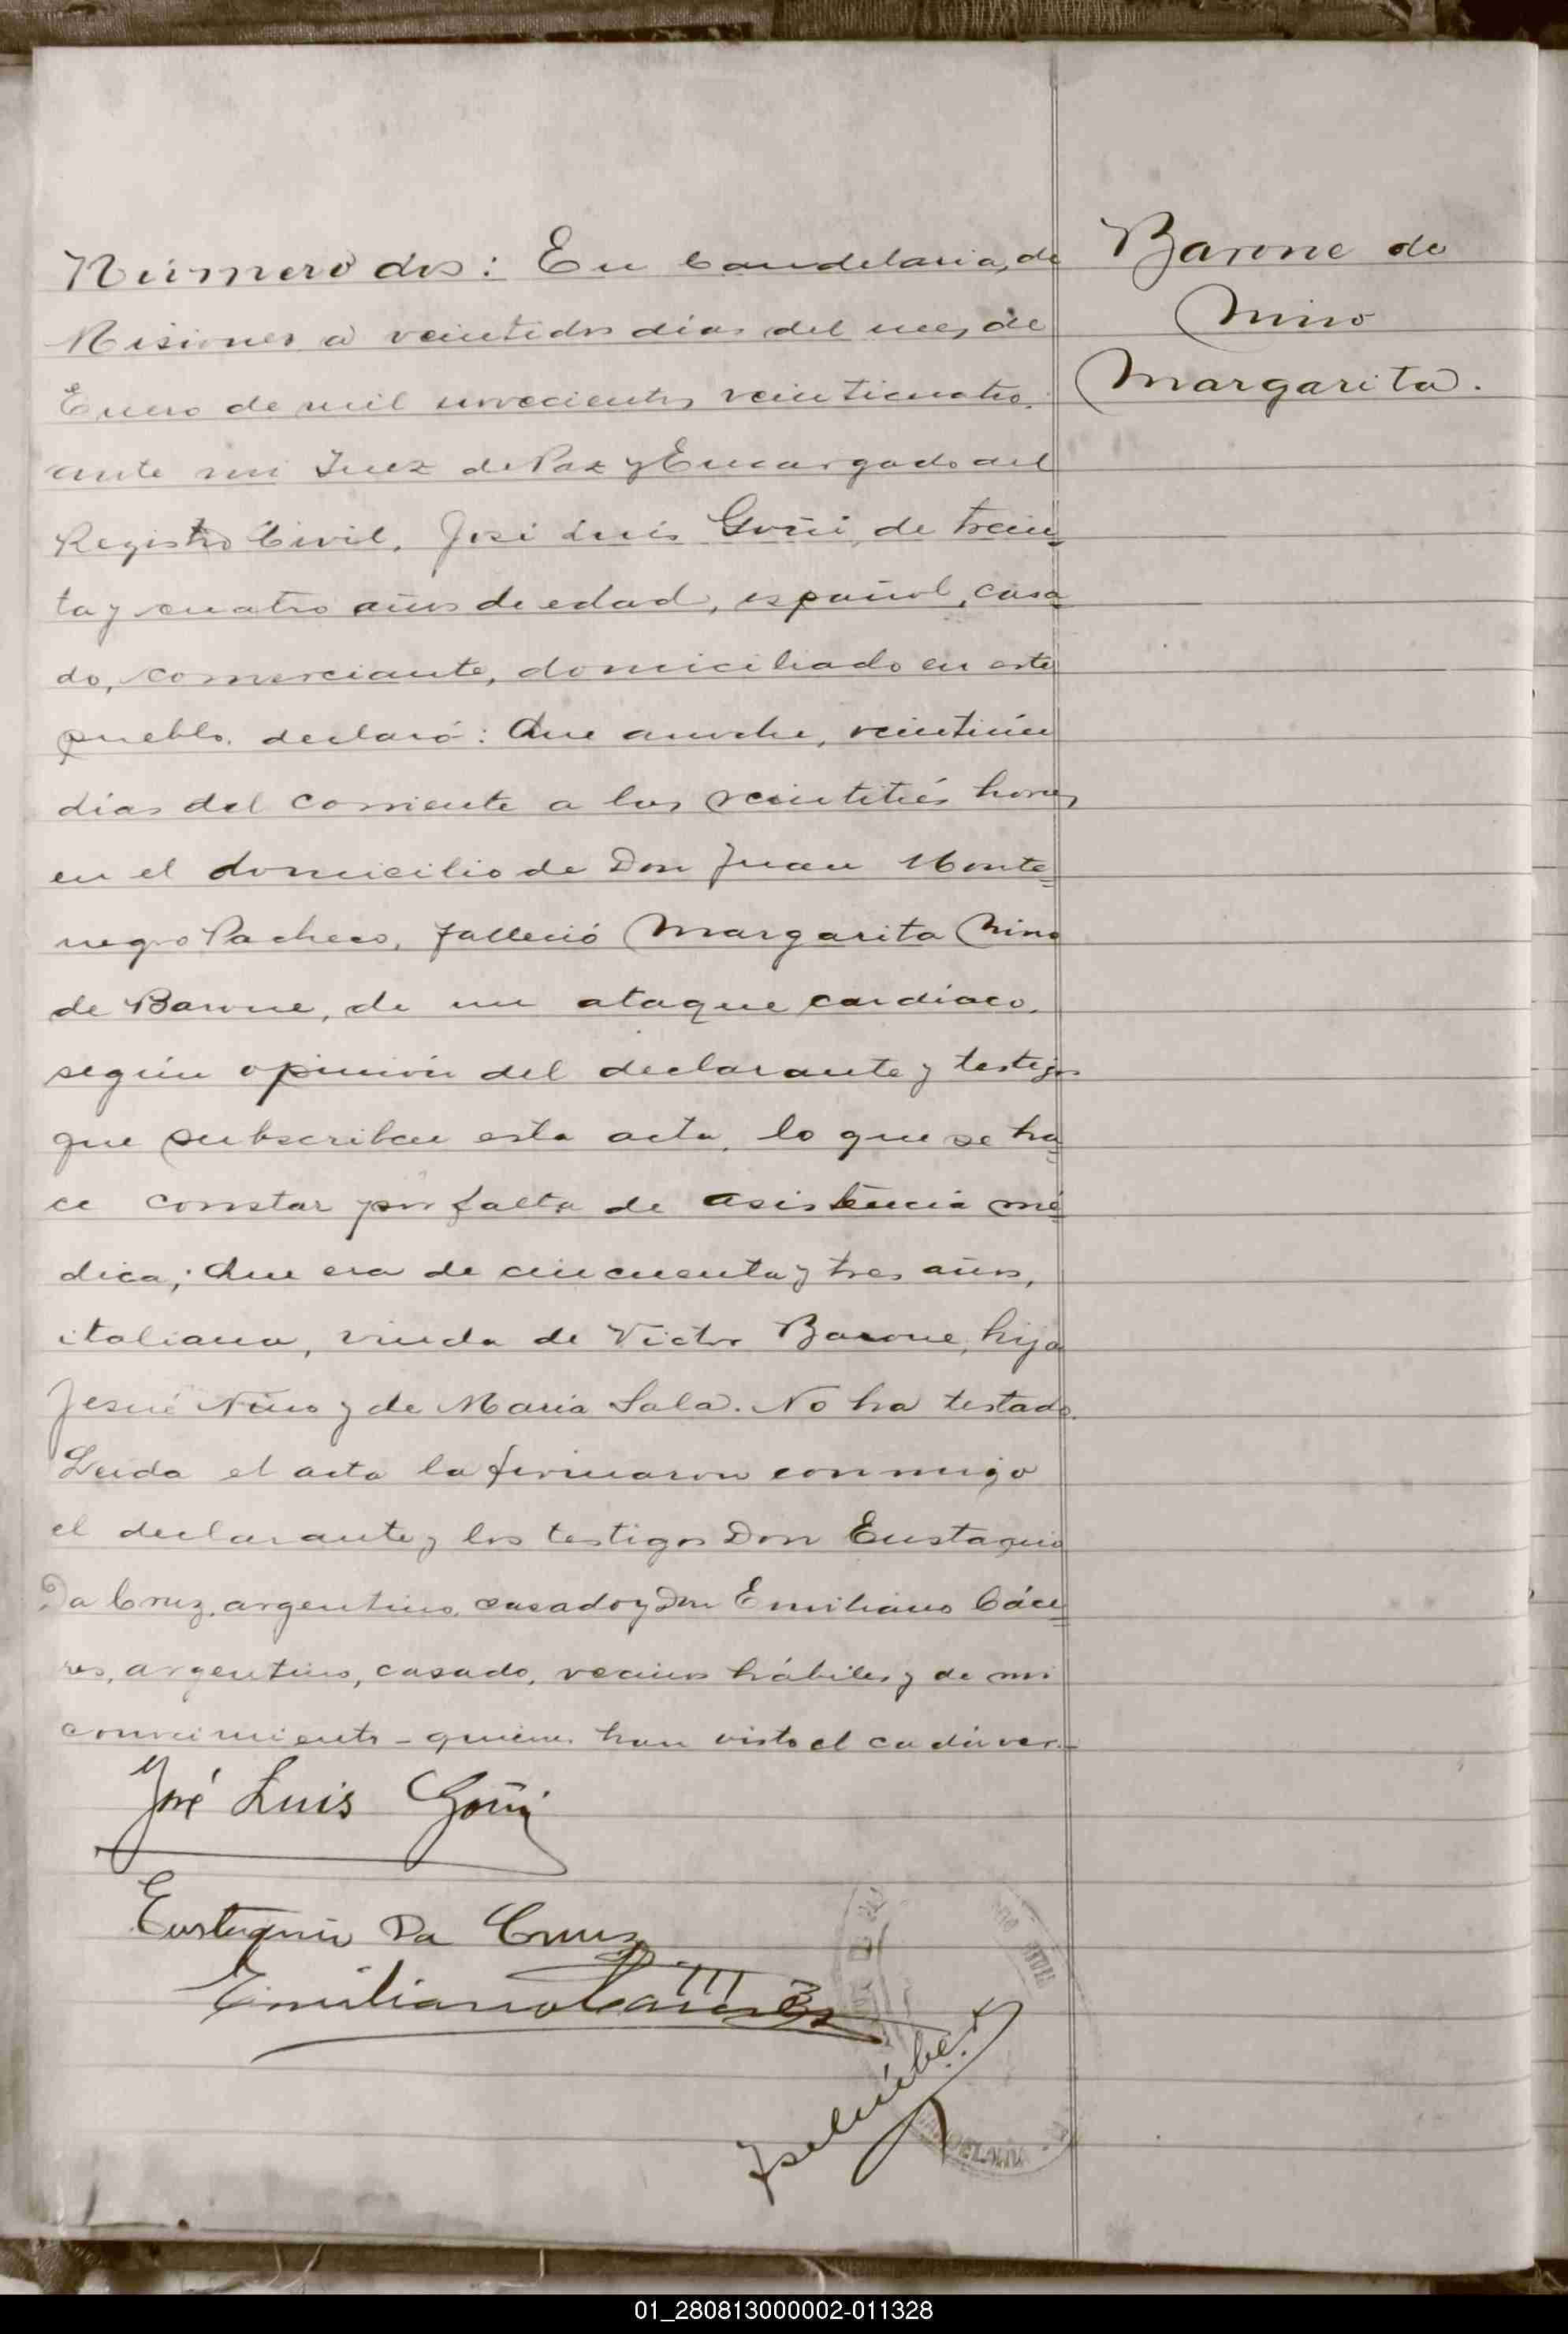 Número dos: En Candelaria, de
Misiones a veintidos días del mes de
Enero de mil novecientos veinticuatro.
ante mi Juez de Paz y Encargado del
Registro Civil, José Luis Goñi, de trein=
ta y cuatro años de edad, español, casa=
do, comerciante, domiciliado en este
pueblo, declaró: Que anoche, veintiún
días del corriente a las veintitrés horas
en el domicilio de Don Juan Monte=
negro Pacheco, falleció Margarita Nino
de Barone, de un ataque cardiaco,
según opinión del declarante y testigos
que subscriben esta acta, lo que se ha=
ce constar por falta de asistencia mé=
dica; Que era de cincuenta y tres años,
italiana, viuda de Victor Barone, hija
Jesué Nino y de Maria Sala. No ha testado.
Leida el acta la firmaron conmigo
el declarante y los testigos Don Eustaquio
Da Cruz, argentino, casado y Don Emiliano Cáce=
res, argentino, casado, vecinos hábiles y de mi
conocimiento - quienes han visto el cadáver.-
José Luis Goñi
Eustaquio Da Cruz
Emiliano Caceres
Barone de
Nino
Margarita.
01_280813000002-011328